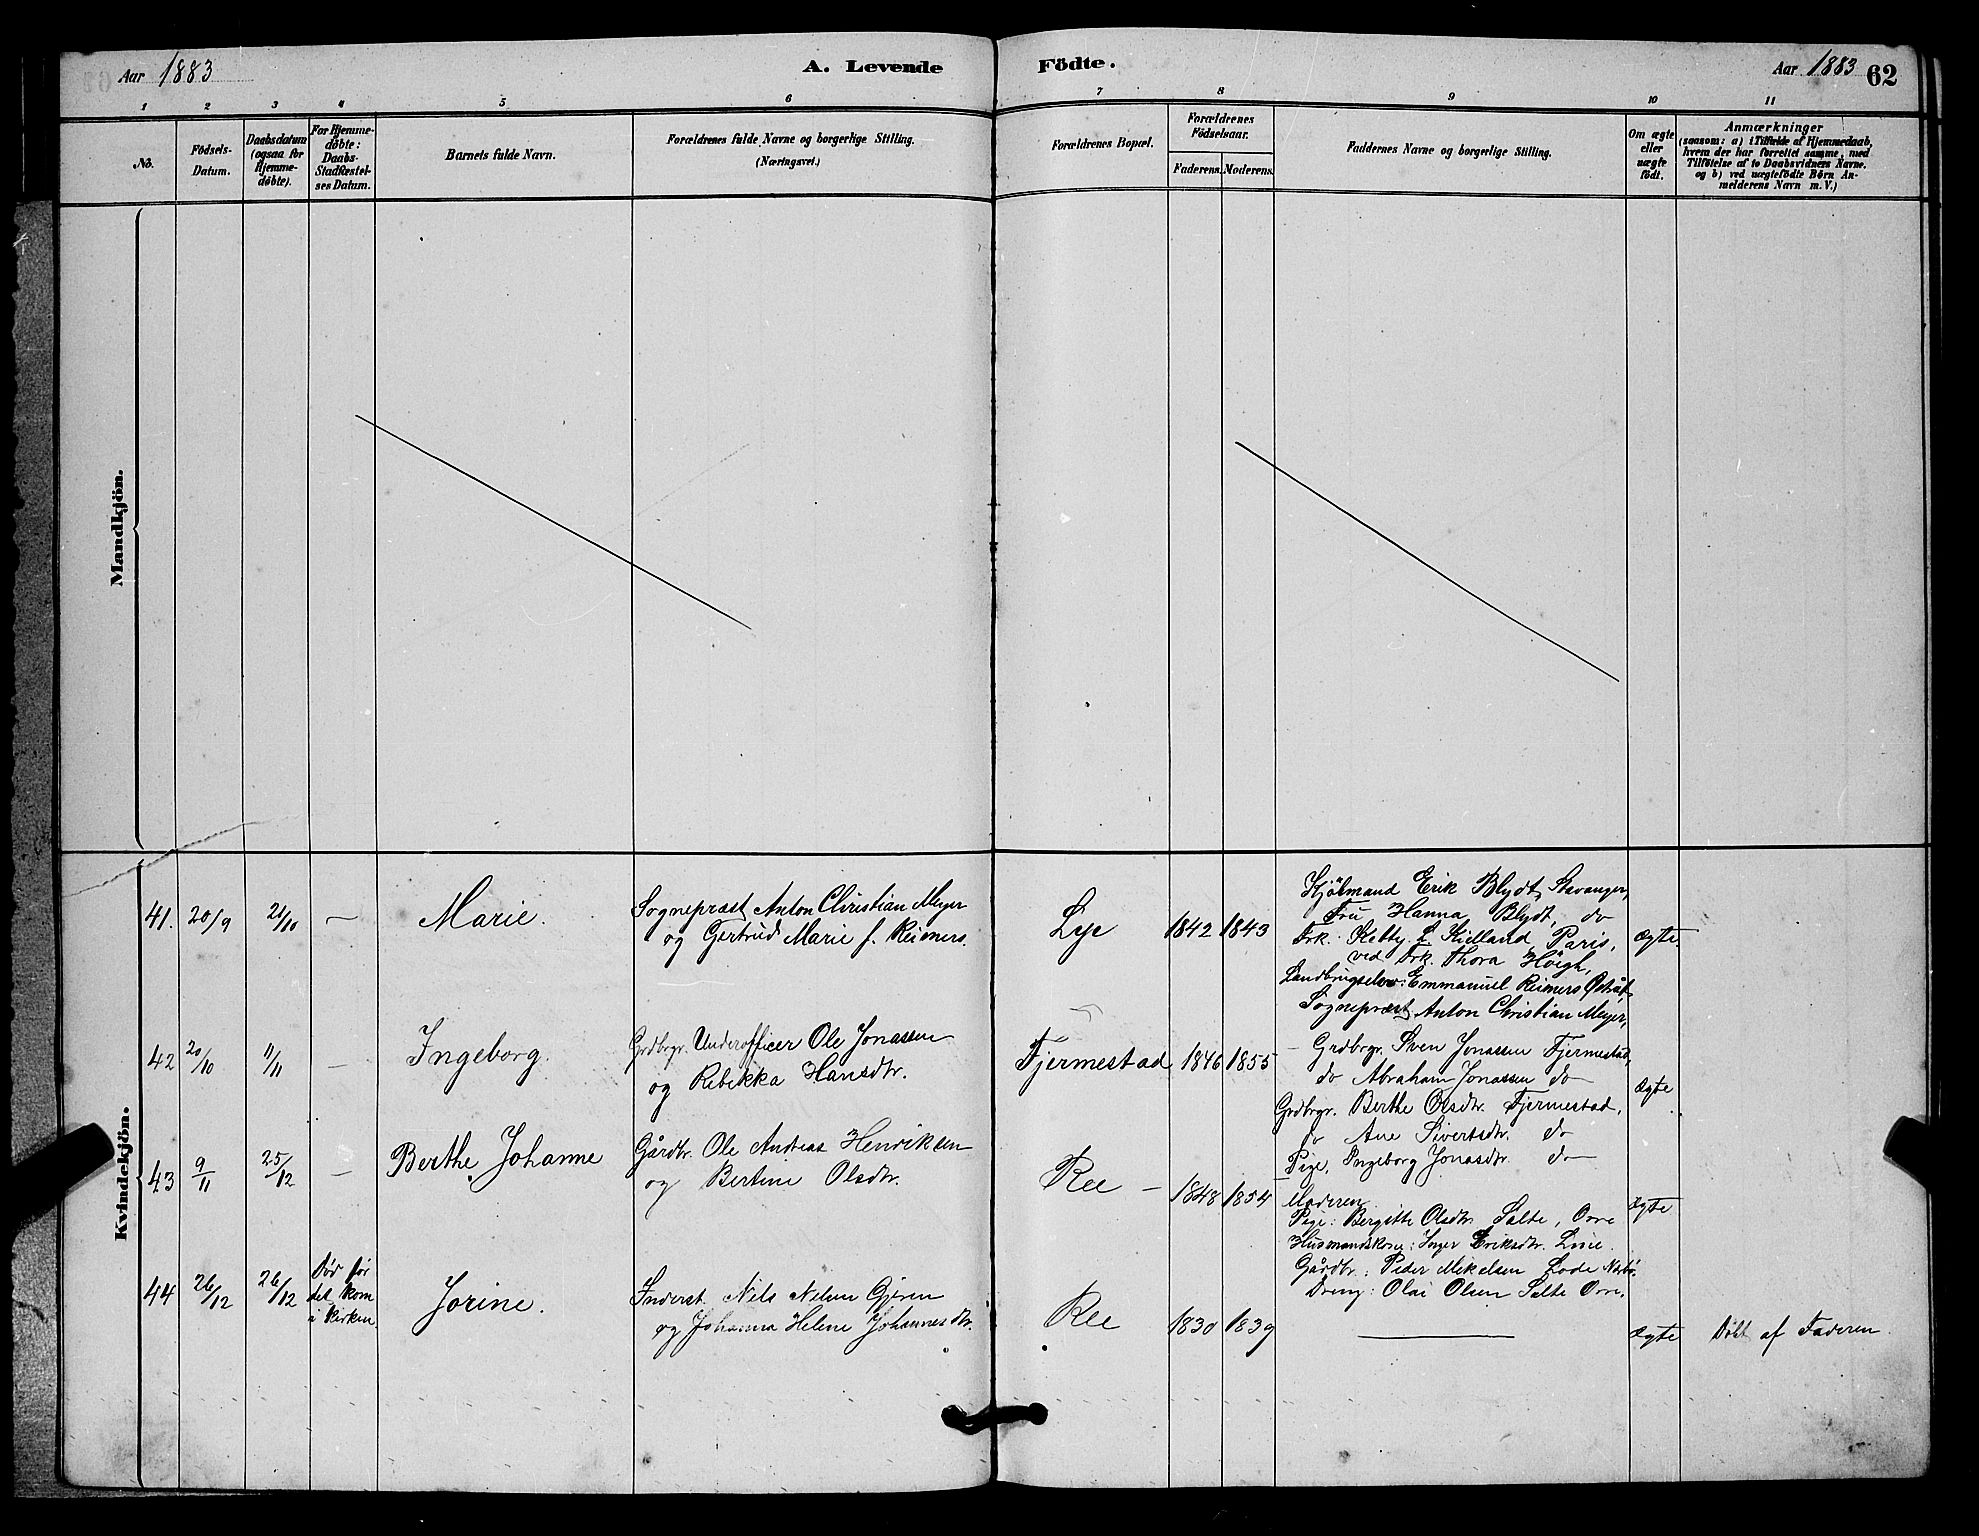 Aar 1883
A. Levende
Födte.
Aar 1883
62
1 2 3 4 5 6 7 8 9 10 11
No.
Födsels-
Datum.
Daabsdatum
(ogsaa for
Hjemme-
döbte).
For Hjemme-
döbte:
Daabs-
Stadfæstel-
ses Datum.
Barnets fulde Navn.
Forældrenes fulde Navne og borgerlige Stilling.
(Næringsvei.)
Forældrenes Bopæl.
Forældrenes
Födselsaar.
Faderens. Moderens.
Faddernes Navne og borgerlige Stilling.
Om ægte
eller
uægte
födt.
Anmærkninger
(saasom: a) i Tilfælde af Hjemmedaab,
hvem der har forrettet samme, med
Tilföielse af to Daabsvidners Navne.
og b) ved uægtefödte Börn An-
melderens Navn m.V.)
Mandkjön.
Kvindekjön.
41. 20/9 21/10 — Marie.
Sognepræst Anton Christian Meyer
og Gertrud Marie f. Reimers.
Lye 1842 1843
Erik Blydt, Stavanger,
Fru Hanna Blydt, do
Frk. Kitty L Kielland, Paris,
ved Frk. Thora Höigh,
Emmanuel Reimers
Sognepræst Anton Christian Meyer,
ægte.
42 20/10 11/11 — Ingeborg.
Grdbrgr. Underofficer Ole Jonassen
og Rebekka Hansdtr.
Fjermestad 1846 1855
Grdbrgr. Sven Jonassen Fjermestad,
do Abraham Jonassen do
Grdbrgr. Berthe Olsdtr. Fjermestad,
do Ane Sivertsdtr. do
Pige, Ingeborg Jonasdtr. do
ægte
43 9/11 25/12 — Berthe Johanne
Gårdbr. Ole Andreas Henriksen
og Bertine Olsdtr.
Ree — 1848 1854
Moderen
Pige: Bergitte Olsdtr Salte, Orre
Husmandskone: Inger Eriksdtr.
Gårdbr.: Peder Mikelsen Lode Nærbö.
Dreng: Olai Olsen Salte Orre.
ægte
44 26/12 26/12
Död för
det kom
i kirken.
Jorine.
Inderst Nils Nilsen Gjeren
og Johanna Helene Johannesdtr.
Ree 1830 1839
ægte
Döbt af Faderen.